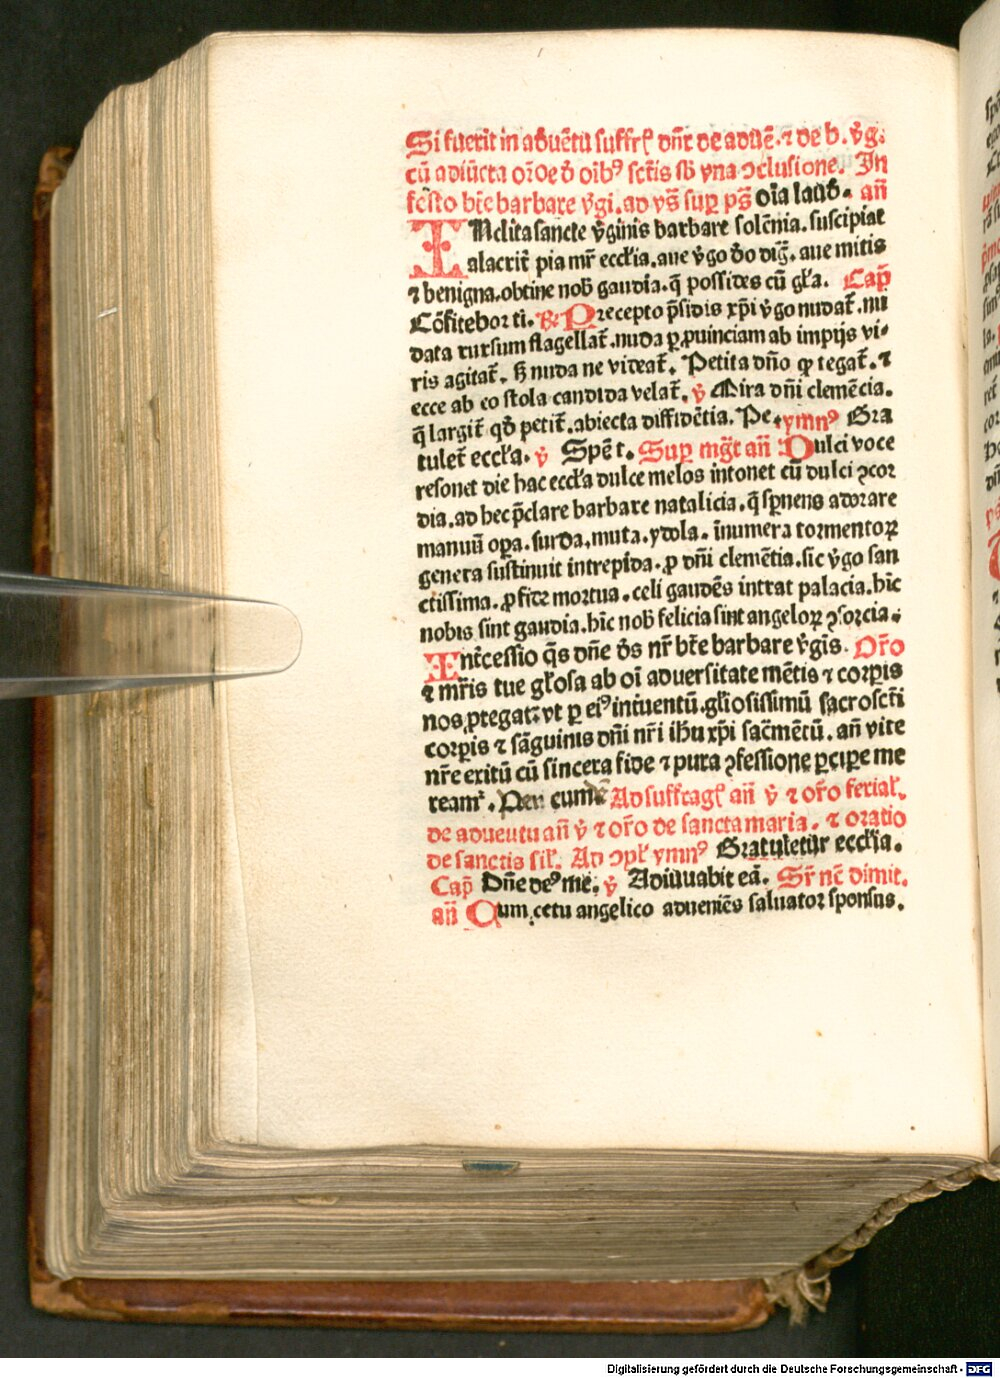 Si fuerit in adue̅tu suffrꝭ dn̅r de adue̅. ⁊ de b. v̅g.
cu̅ adiu̅cta or̅oe d̅ oi̅bꝰ sct̅is sb̅ vna ↄclusione. In
festo bt̅e barbare v̅gi. ad vs̅ sup̲ ps̅ oi̅a laud̅. an̅
INclita sancte v̅ginis barbare sole̅nia. suscipiat
alacrit̅ pia mr̅ eccl̅ia. aue v̅go d̅o dig̅. aue mitis
⁊ benigna. obtine nob̅ gaudia. q̅ possides cu̅ gl̅a. Cap̅
Co̅fitebor ti. ℟ Precepto p̅sidis xp̅i v̅go nudat̅. nu
data rursum flagellat̅. nuda ꝑ ꝓuinciam ab impijs vi-
ris agitat̅. ß nuda ne videat̅. Petita dn̅o ꝙ tegat̅. ⁊
ecce ab eo stola candida velat̅. ℣ Mira dn̅i cleme̅cia.
q̅ largit̅ qd̅ petit̅. abiecta diffide̅tia. Pe. ymnꝰ Gra
tulet̅ eccl̅a. ℣ Spe̅ t. Sup̲ mg̅t an̅ Dulci voce
resonet die hac eccl̅a dulce melos intonet cu̅ dulci ꝯcor
dia. ad hec p̅clare barbare natalicia. q̅ sp̲nens adorare
manuu̅ oꝑa. surda, muta. ydola. i̅numera tormentoꝝ
genera sustinuit intrepida. ꝓ dn̅i cleme̅tia. sic v̅go san
ctissima. ꝓ fide mortua. celi gaude̅s intrat palacia. hi̅c
nobis sint gaudia. hi̅c nob̅ felicia sint angeloꝝ ꝯsorcia.
Int̅cessio q̅s dn̅e d̅s nr̅ bt̅e barbare v̅gi̅s. Or̅o
⁊ mr̅is tue gl̅osa ab oi̅ aduersitate me̅tis ⁊ corꝑis
nos ꝓtegat: vt ꝑ eiꝰ intuentu̅. gl̅iosissimu̅ sacrosct̅i
corꝑis ⁊ sa̅guinis dn̅i nr̅i ih̅u xp̅i sac̅me̅tu̅. an̅ vite
nr̅e exitu̅ cu̅ sincera fide ⁊ pura ꝯfessione ꝑciꝑe me
reamꝰ. Per eum̅ Ad suffragꝭ an̅ ℣ ⁊ or̅o ferial̅.
de aduentu an̅ ℣ ⁊ or̅o de sancta maria. ⁊ oratio
de sanctis sil̅. Ad ↄpl̅ ymnꝰ Gratuletur eccl̅ia.
Cap̅ Dn̅e deꝰ me. ℣ Adiuuabit ea̅. Sr̅ ne̅ dimit.
an̅ Cum cetu angelico adue̅ie̅s saluator sponsus.
Digitalisierung gefördert durch die Deutsche Forschungsgemeinschaft - DFG